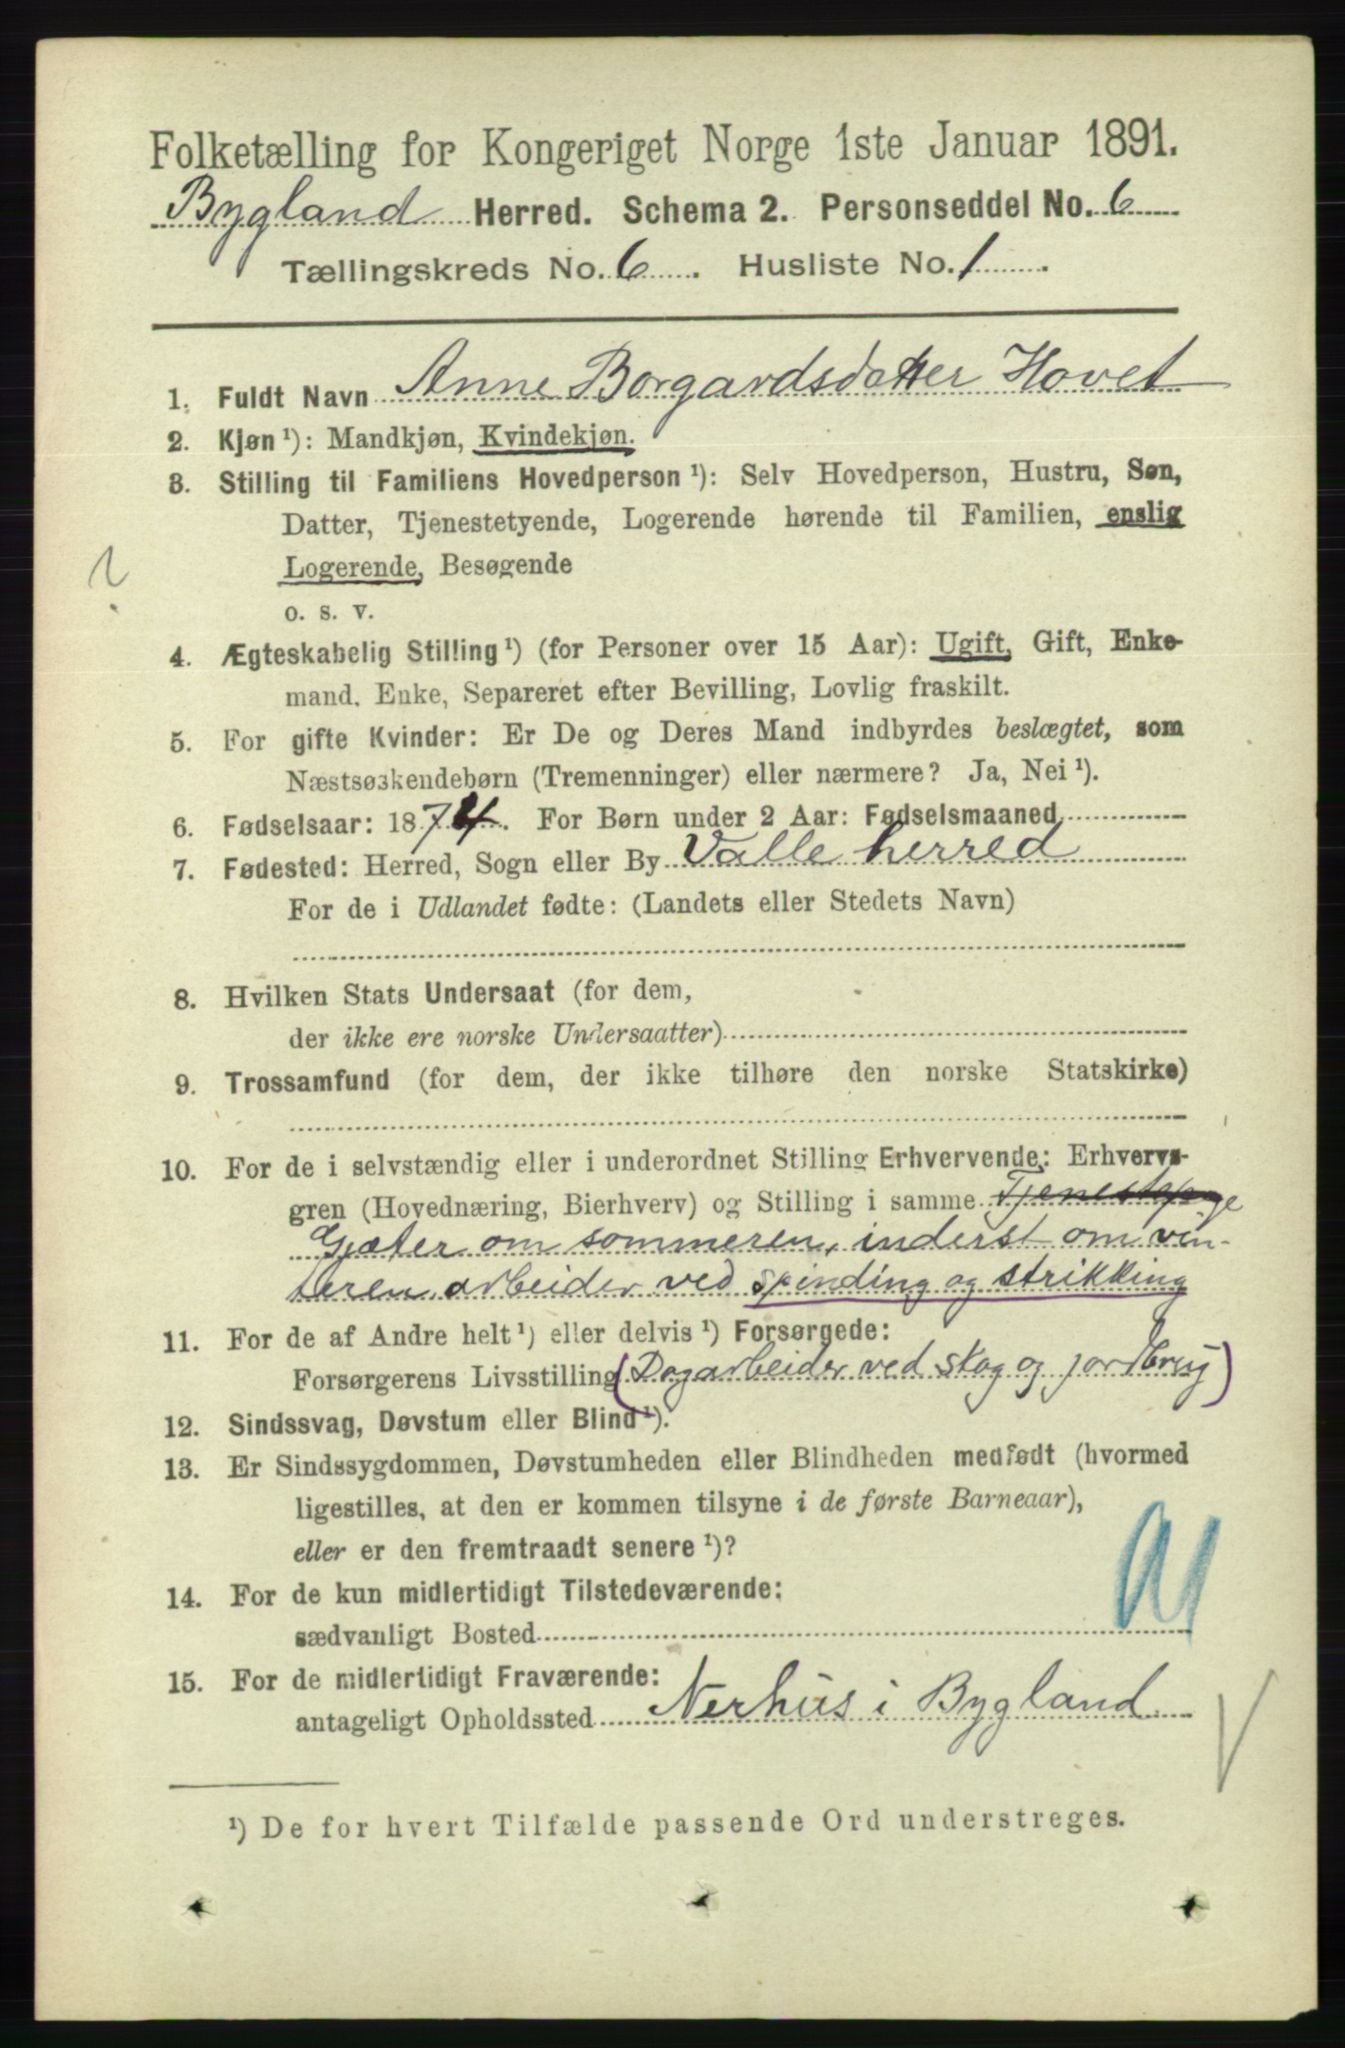 Folketælling for Kongeriget Norge 1ste Januar 1891.
Bygland Herred. Schema 2. Personseddel No. 6
Tællingskreds No. 6. Husliste No. 1.
1. Fuldt Navn Anne Borgardsdatter Hovet
2. Kjøn ¹): Mandkjøn, Kvindekjøn.
3. Stilling til Familiens Hovedperson ¹): Selv Hovedperson, Hustru, Søn,
Datter, Tjenestetyende, Logerende hørende til Familien, enslig
Logerende, Besøgende
o. s. v.
?
4. Ægteskabelig Stilling ¹) (for Personer over 15 Aar): Ugift, Gift, Enke-
mand, Enke, Separeret efter Bevilling, Lovlig fraskilt.
5. For gifte Kvinder: Er De og Deres Mand indbyrdes beslægtet, som
Næstsøskendebørn (Tremenninger) eller nærmere? Ja, Nei ¹).
6. Fødselsaar: 1874. For Børn under 2 Aar: Fødselsmaaned
7. Fødested: Herred, Sogn eller By Valle herred
For de i Udlandet fødte: (Landets eller Stedets Navn)
8. Hvilken Stats Undersaat (for dem,
der ikke ere norske Undersaatter)
9. Trossamfund (for dem, der ikke tilhøre den norske Statskirke)
10. For de i selvstændig eller i underordnet Stilling Erhvervende: Erhvervs-
gren (Hovednæring, Bierhverv) og Stilling i samme
Gjæter om sommeren, inderst om vin-
teren arbeider ved spinding og strikking
11. For de af Andre helt ¹) eller delvis ¹) Forsørgede:
Forsørgerens Livsstilling (Dagarbeider ved skog og jordbrug)
12. Sindssvag, Døvstum eller Blind ¹).
13. Er Sindssygdommen, Døvstumheden eller Blindheden medfødt (hvormed
ligestilles, at den er kommen tilsyne i de første Barneaar),
eller er den fremtraadt senere ¹)?
14. For de kun midlertidigt Tilstedeværende:
sædvanligt Bosted
15. For de midlertidigt Fraværende:
antageligt Opholdssted Nerhus i Bygland
¹) De for hvert Tilfælde passende Ord understreges.